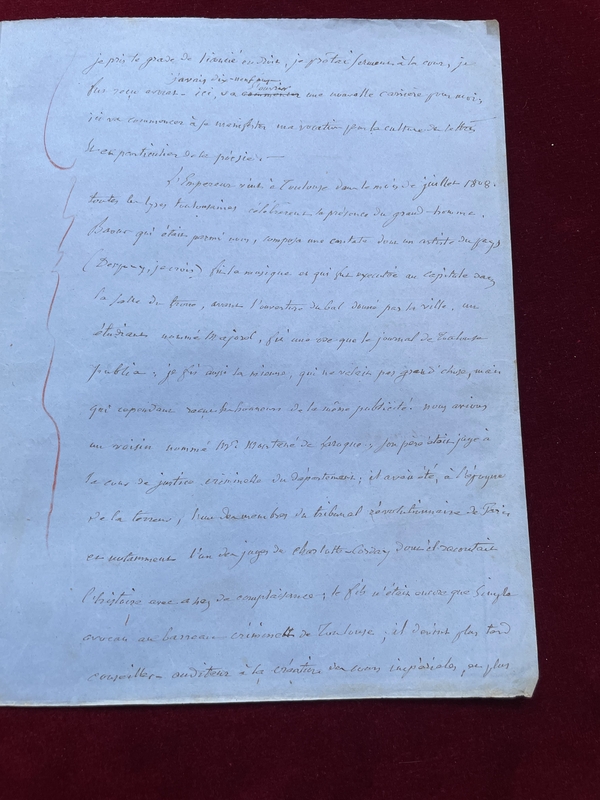 je pris le grade de licencié en droit, je prêtai serment à la cour, je
j'avais dix-neuf ans.
fus reçu avocat - ici, va commencer s'ouvrir une nouvelle carrière pour moi,
ici va commencer à se manifester ma vocation pour la culture des lettres
et en particulier de la poésie.
L'Empereur vint à Toulouse dans le mois de juillet 1808.
toutes les lyres toulousaines célébrèrent la présence du grand-homme.
Baour qui était parmi nous, composa une cantate dont un artiste du pays
( je crois) fit la musique et qui fut exécutée au capitole dans
la salle du trône, avant l'ouverture du bal donné par la ville. un
étudiant nommé fit une ode que le journal de Toulouse
publia; je fis aussi la mienne, qui ne valait pas grand'chose, mais
qui cependant reçut les honneurs de la même publicité. nous avions
un voisin nommé Mr de Laroque; son père était juge à
la cour de justice criminelle du département; il avait été, à l'époque
de la terreur, l'un des membres du tribunal révolutionnaire de Paris
et notamment l'un des juges de Charlotte Corday dont il racontait
l'histoire avec assez de complaisance; le fils n'était encore que simple
avocat au barreau criminel de Toulouse; il devint plus tard
conseiller - auditeur à la création des cours impériales, et plus